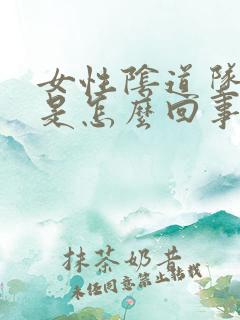 女性陰道隊
是怎麼回事
抹茶奶昔
未经同意禁止转载